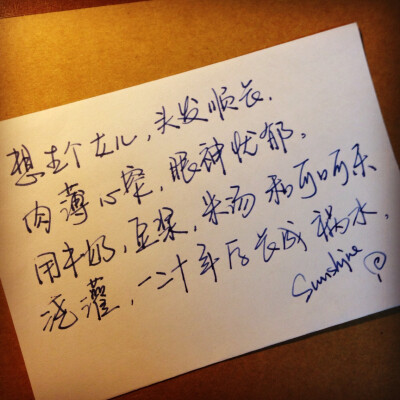 想生个女儿，头发顺长，
肉薄心窄，眼神忧郁。
用牛奶，豆浆，米汤和可口可乐
浇灌，一二十年后长成祸水，
Sunshine